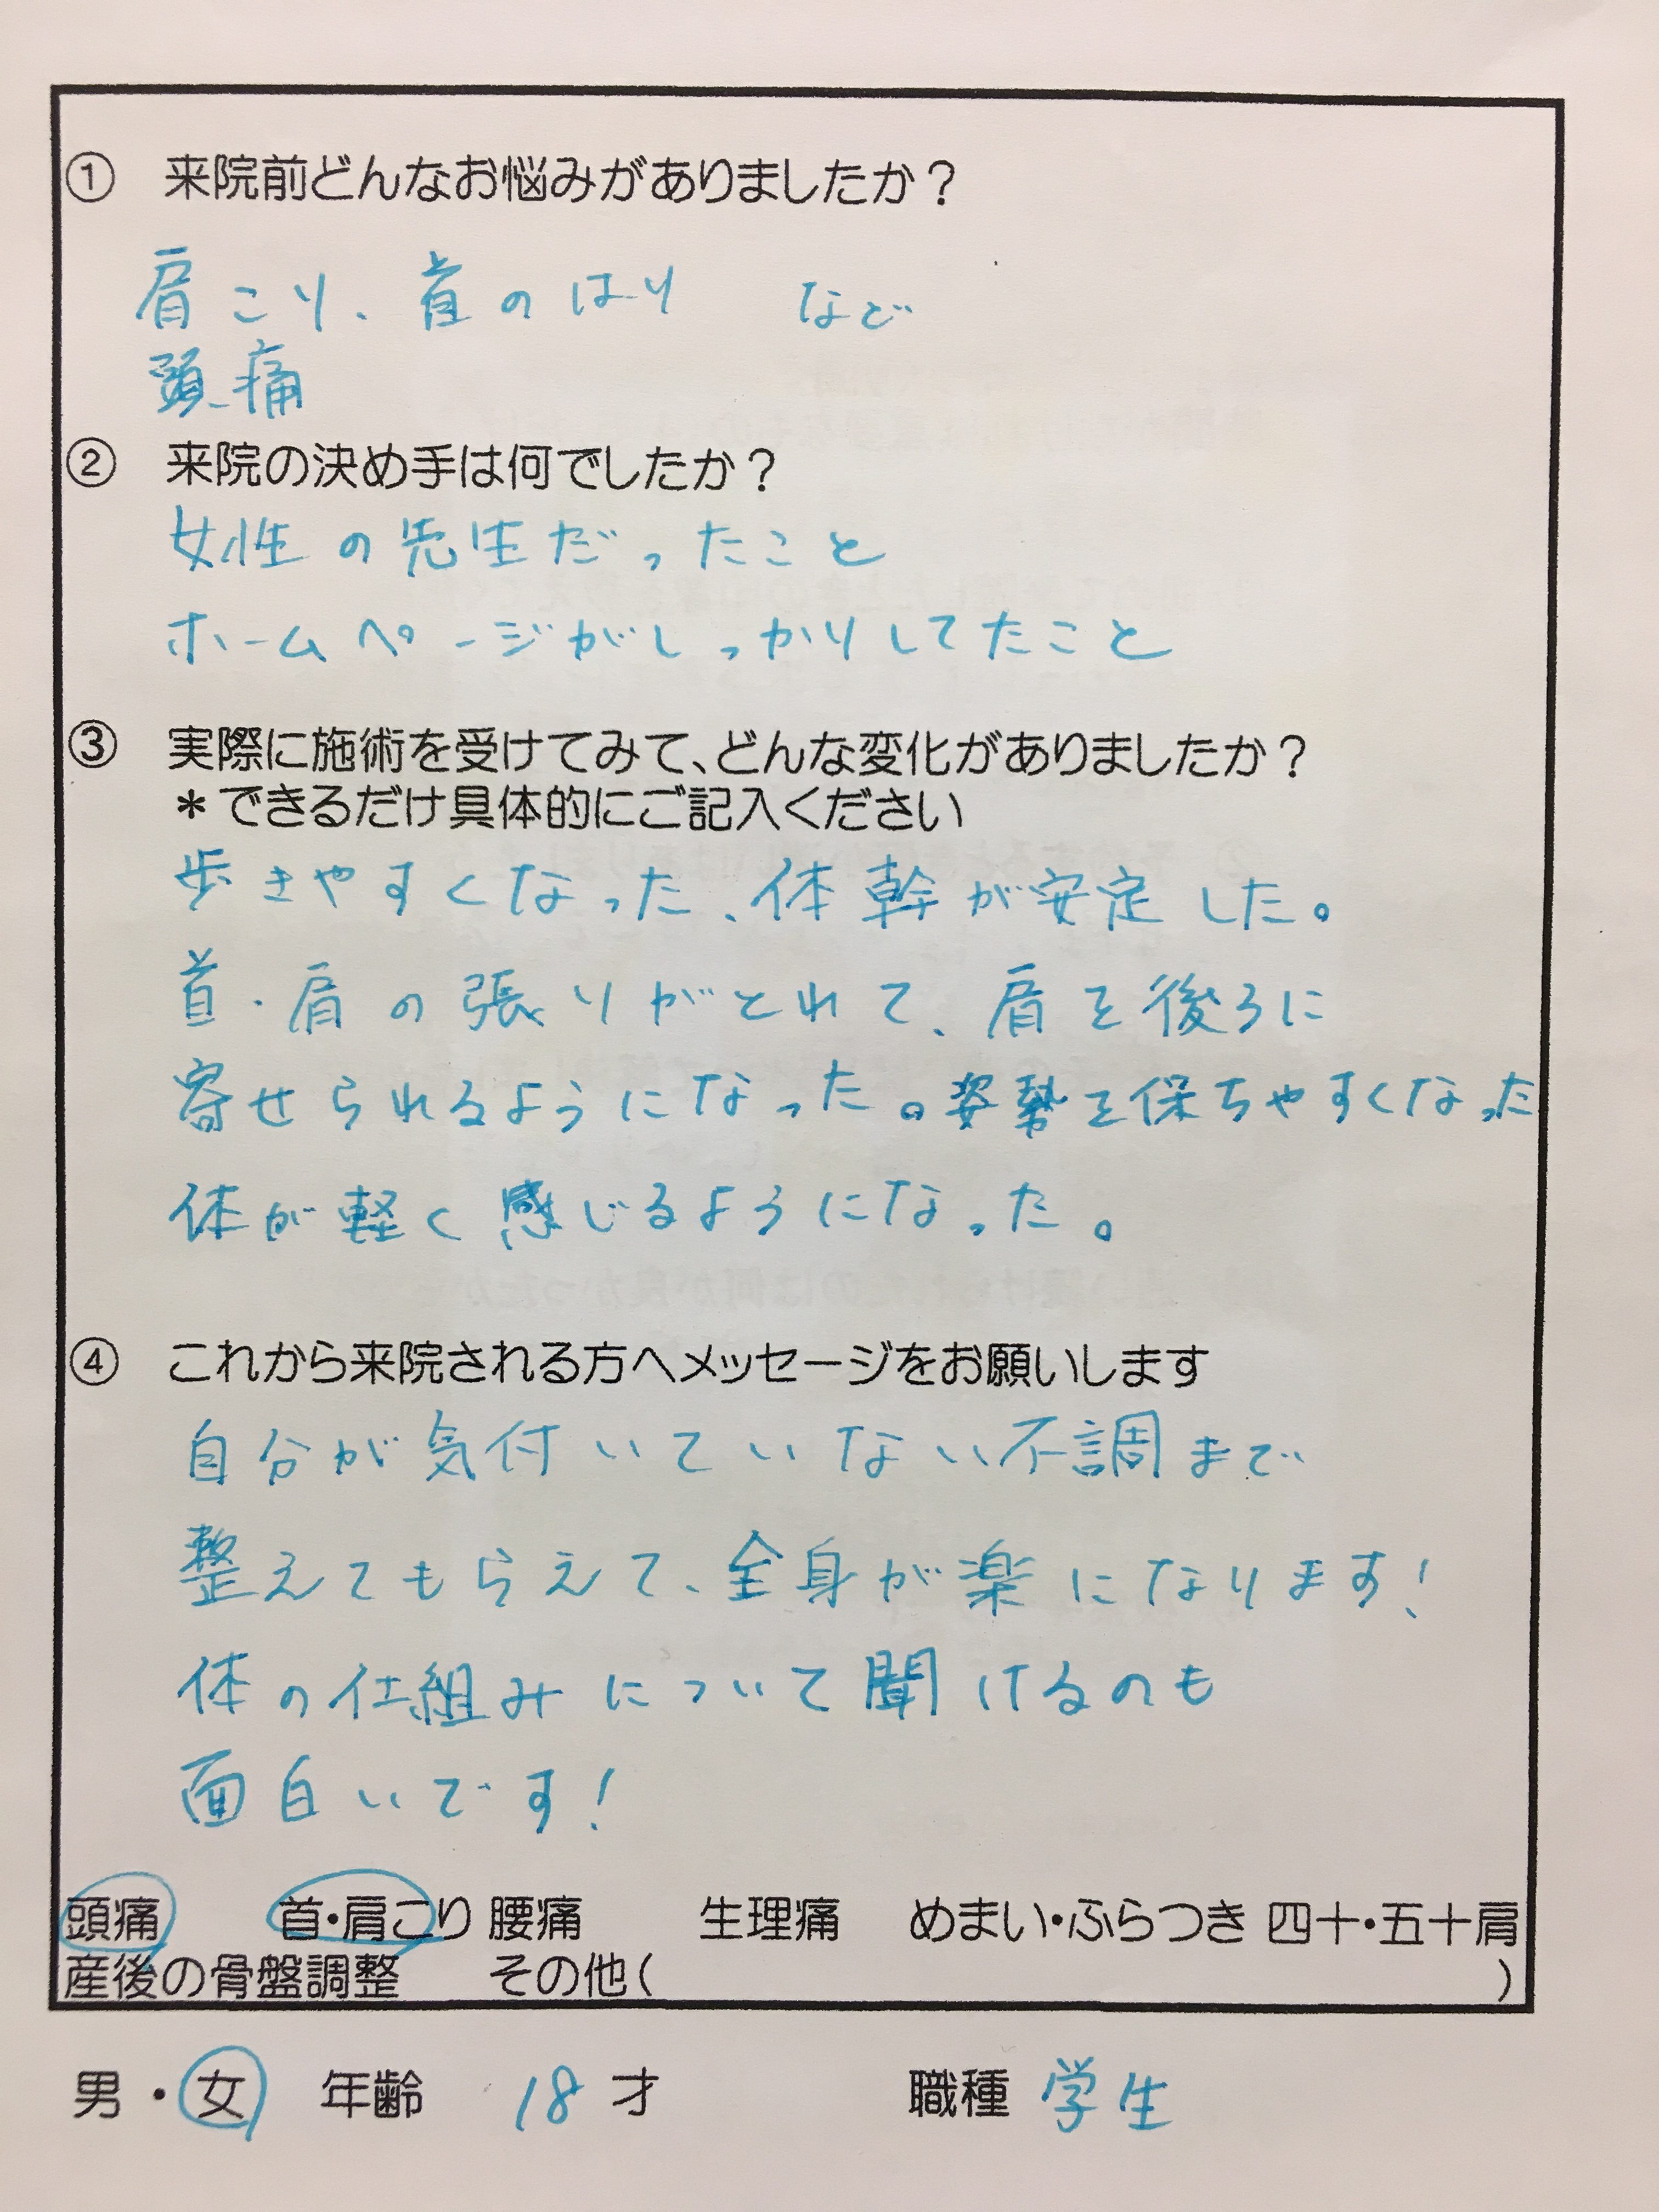 ① 来院前どんなお悩みがありましたか？
肩こり、首のはり など
頭痛
② 来院の決め手は何でしたか？
女性の先生だったこと
ホームページがしっかりしてたこと
③ 実際に施術を受けてみて、どんな変化がありましたか？
＊できるだけ具体的にご記入ください
歩きやすくなった、体幹が安定した。
首・肩の張りがとれて、肩を後ろに
寄せられるようになった。姿勢を保ちやすくなった
体が軽く感じるようになった。
④ これから来院される方へメッセージをお願いします
自分が気付いていない不調まで
整えてもらえて、全身が楽になります！
体の仕組みについて聞けるのも
面白いです！
頭痛 首・肩こり 腰痛 生理痛 めまい・ふらつき 四十・五十肩
産後の骨盤調整 その他（ ）
男・女 年齢 18 才 職種 学生